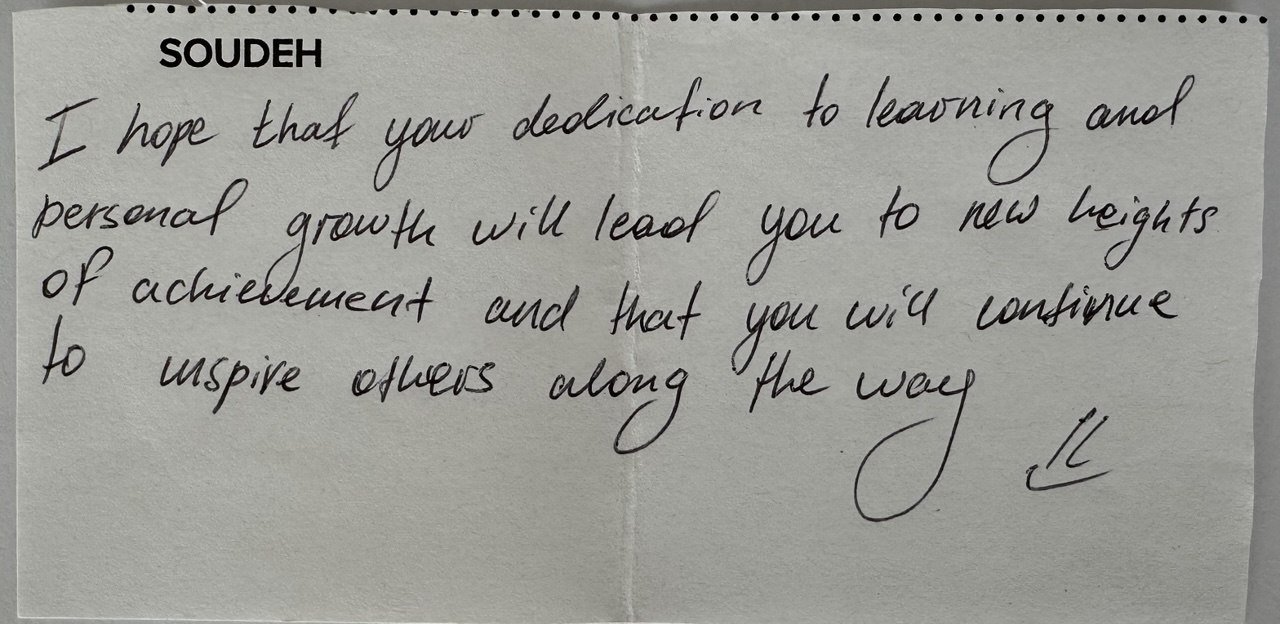 SOUDEH
I hope that your dedication to learning and
personal growth will lead you to new heights
of achievement and that you will continue
to inspire others along the way